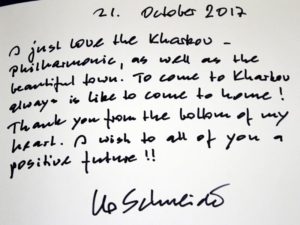 21. October 2017
I just love the Kharkov -
philharmonic, as well as the
beautiful town. To come to Kharkov
always is like to come to home!
Thank you from the bottom of my
heart. I wish to all of you a
positive future!!
Schneider